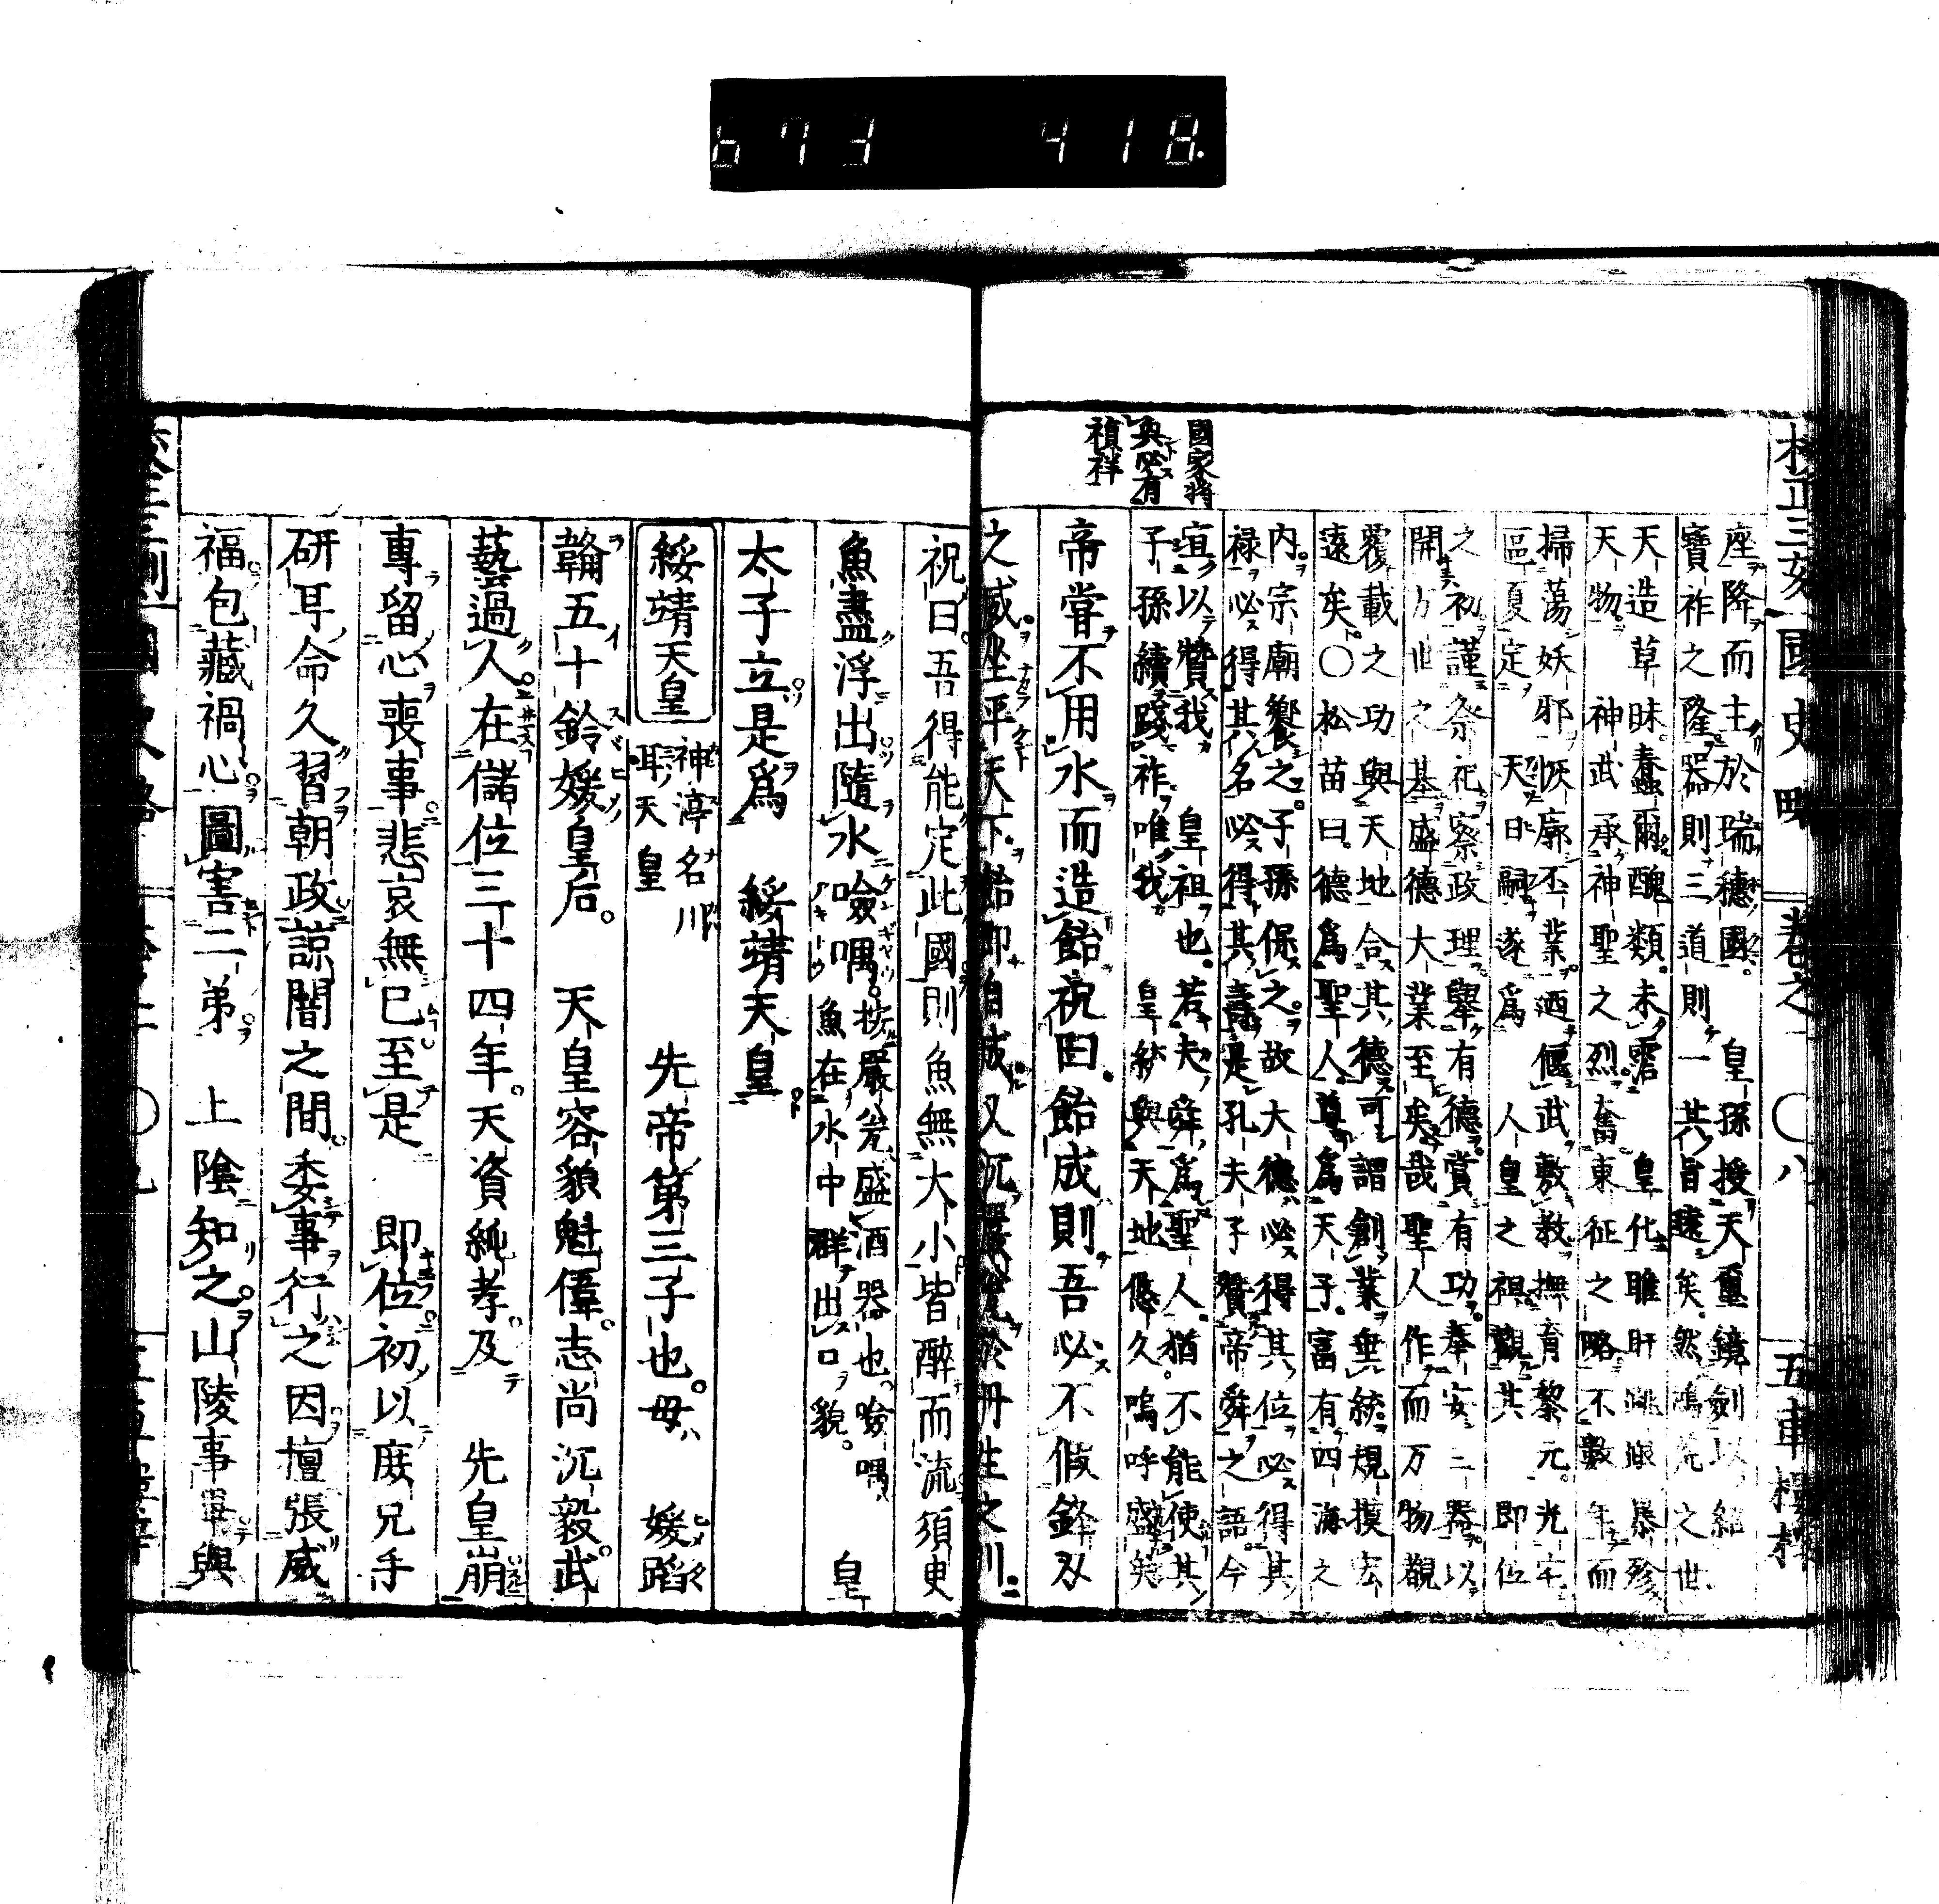 673 418
國家將
興必有
禎祥
國史略 卷之 〇八
座降而主於瑞穗國 皇孫授天璽鏡劍以紹
寶祚之隆器則三道則一其旨遠矣然鴻荒之世
天造草昧蠢爾醜類未霑 皇化睢盱跳踉暴殄
天物 神武承神聖之烈奮東征之略不數年而
掃蕩妖邪恢廓丕業迺偃武敷教撫育黎元光宅
區夏定 天日嗣遂爲 人皇之祖觀其 即位
之初謹祭祀察政理舉有德賞有功奉安二器以
開万世之基盛德大業至矣哉聖人作而万物覩
覆載之功與天地合其德可謂創業垂統規摸宏
遠矣〇松苗曰德爲聖人尊爲天子富有四海之
內宗廟饗之子孫保之故大德必得其位必得其
祿必得其名必得其壽是孔夫子贊帝舜之語今
宜以贊我 皇祖也若夫舜爲聖人猶不能使其
子孫續踐祚唯我 皇統與天地悠久嗚呼盛矣
帝嘗不用水而造飴祝曰飴成則吾必不假鋒刃
之威坐平天下飴即自成又沉嚴瓮於丹生之川
祝曰吾得能定此國則魚無大小皆醉而流須臾
魚盡浮出隨水噞喁 按嚴瓮盛酒器也噞喁
魚在水中群出口貌 皇
太子立是爲 綏靖天皇
綏靖天皇 神渟名川
耳天皇 先帝第三子也母 媛蹈
鞴五十鈴媛皇后 天皇容貌魁偉志尚沉毅武
藝過人在儲位三十四年天資純孝及 先皇崩
專留心喪事悲哀無已至是 即位初以庶兄手
研耳命久習朝政諒闇之間委事行之因擅張威
福包藏禍心圖害二弟 上陰知之山陵事畢與